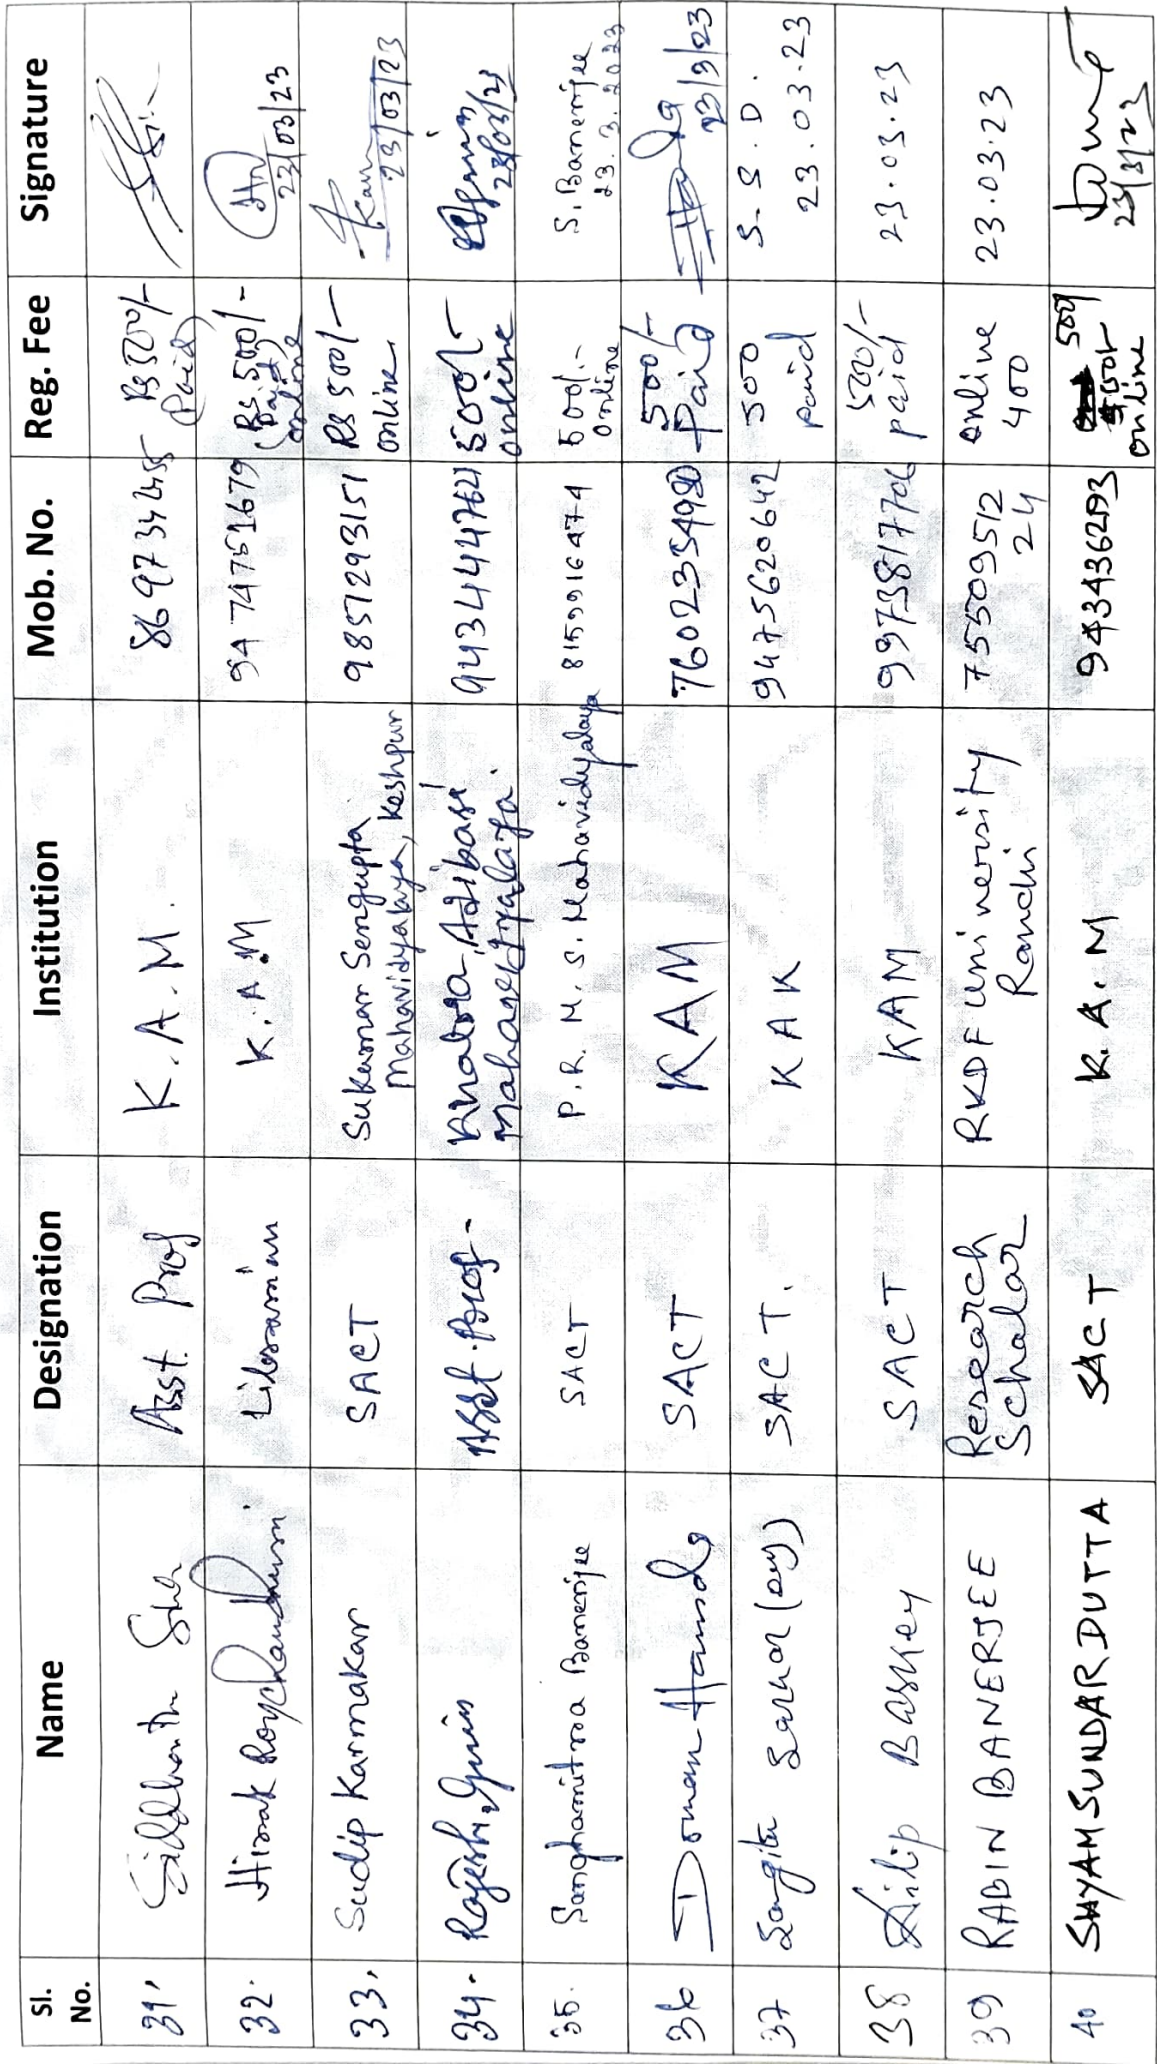 Sl. No. Name Designation Institution Mob. No. Reg. Fee Signature
31, Siddhartha Asst. Prof K.A.M. Rs 500/- (Paid)
32. Hirak Roychaudhuri. Librarian K.A.M 9474751679 Rs.500/- (Paid) online 23/03/23
33, Sudip Karmakar SACT Sukumar Sengupta Mahavidyalaya, Keshpur 9851293151 Rs 500/- online 23/03/23
34. Rajesh Guin Asst. Prof- Khatra Adibasi Mahavidyalaya. 500/- online 23/03/23
35. Sanghamitra Banerjee SACT P.R.M.S. Mahavidyalaya 8159916474 500/- online S. Banerjee 23.3.2023
36 Doman Hansda SACT KAM 500/- Paid 23/3/23
37 Sangita Sarkar (Dey) SACT. KAK 9475620642 500 paid S.S.D. 23.03.23
38 Dilip Baskey SACT KAM 500/- paid 23.03.23
39 RABIN BANERJEE Research Scholar RKDF University Ranchi 7550951224 online 400 23.03.23
40 SHYAMSUNDAR DUTTA SACT K.A.M 500 online 23/3/23